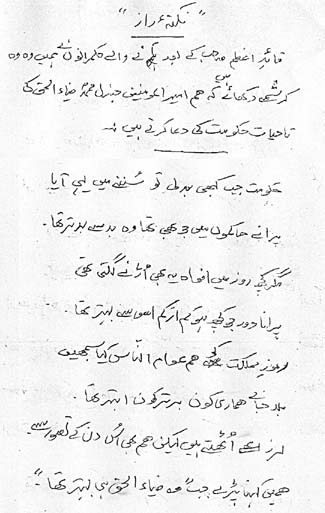 "نکتۂ راز"
قائدِ اعظم صاحب کے بعد آنے والے حکمرانوں نے ہمیں وہ وہ
کرشمے دکھائے ہیں کہ ہم امیرالمومنین جنرل محمد ضیاء الحق کی
تاحیات حکومت کی دعا کرتے ہیں۔
حکومت جب کبھی بدلی تو سننے میں یہی آیا
پرانے حاکموں میں جو بھی تھا وہ بد سے بدتر تھا۔
مگر کچھ روز میں افواہ یہ بھی اڑنے لگتی تھی
پرانا دور جو کچھ ہو کم از کم اس سے بہتر تھا۔
رموزِ مملکت کو ہم عوام الناس کیا سمجھیں
بلا جانے ہماری کون برتر کون ابتر تھا۔
لرز اٹھتے ہیں لیکن ہم بھی اُس دن کے تصور سے
ہمیں کہنا پڑے جب "وہ ضیاء الحق ہی بہتر تھا"۔